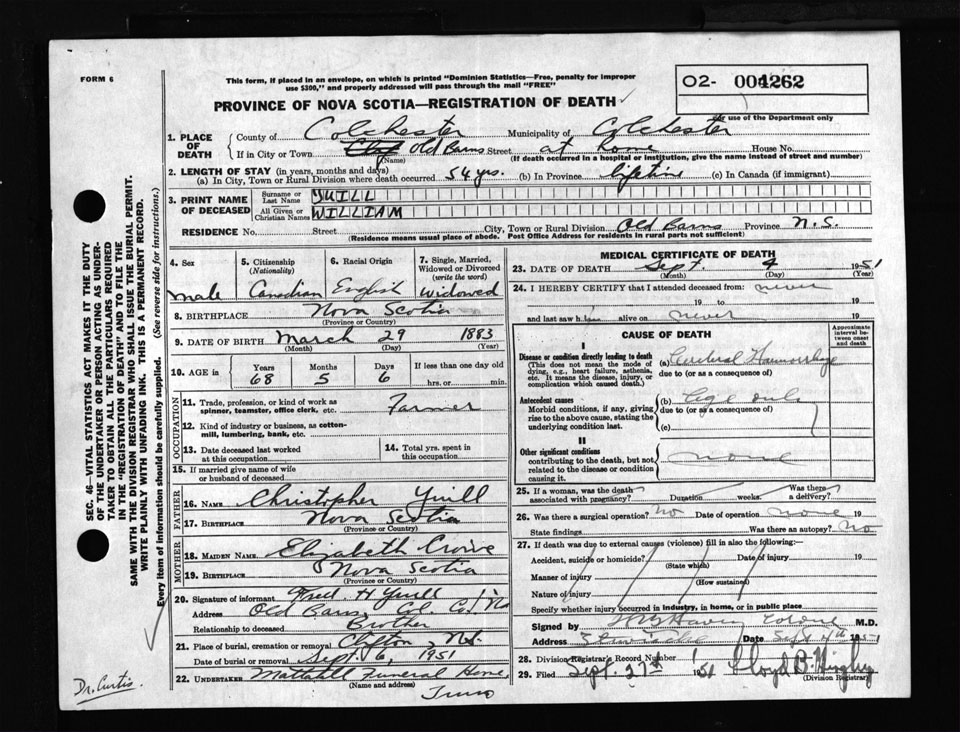 FORM 6
This form, if placed in an envelope, on which is printed "Dominion Statistics—Free, penalty for improper
use $300," and properly addressed will pass through the mail "FREE"
O2- 004262
For use of the Department only
PROVINCE OF NOVA SCOTIA—REGISTRATION OF DEATH
1. PLACE OF DEATH County of Colchester Municipality of Colchester
If in City or Town Old Barns Street at home House No.
(Name) (If death occurred in a hospital or institution, give the name instead of street and number)
2. LENGTH OF STAY (in years, months and days)
(a) In City, Town or Rural Division where death occurred 54 yrs. (b) In Province lifetime (c) In Canada (if immigrant)
3. PRINT NAME OF DECEASED Surname or Last Name YUILL
All Given or Christian Names WILLIAM
RESIDENCE No. Street City, Town or Rural Division Old Barns Province N.S.
(Residence means usual place of abode. Post Office Address for residents in rural parts not sufficient)
4. Sex male
5. Citizenship (Nationality) Canadian
6. Racial Origin English
7. Single, Married, Widowed or Divorced (write the word) widowed
8. BIRTHPLACE Nova Scotia
(Province or Country)
9. DATE OF BIRTH March 29 1883
(Month) (Day) (Year)
10. AGE in Years 68 Months 5 Days 6 If less than one day old hrs. or min.
OCCUPATION
11. Trade, profession, or kind of work as spinner, teamster, office clerk, etc. Farmer
12. Kind of industry or business, as cotton-mill, lumbering, bank, etc.
13. Date deceased last worked at this occupation
14. Total yrs. spent in this occupation
15. If married give name of wife or husband of deceased
FATHER
16. NAME Christopher Yuill
17. BIRTHPLACE Nova Scotia
(Province or Country)
MOTHER
18. MAIDEN NAME Elizabeth Crowe
19. BIRTHPLACE Nova Scotia
(Province or Country)
20. Signature of informant Fred H Yuill
Address Old Barns, Col. Co. NS
Relationship to deceased Brother
21. Place of burial, cremation or removal Clifton N.S.
Date of burial or removal Sept. 6, 1951
22. UNDERTAKER Mattatall Funeral Home,
(Name and address) Truro
MEDICAL CERTIFICATE OF DEATH
23. DATE OF DEATH Sept. 4 1951
(Month) (Day) (Year)
24. I HEREBY CERTIFY that I attended deceased from: never
19 to 19
and last saw h alive on never 19
CAUSE OF DEATH
Approximate interval between onset and death
I
Disease or condition directly leading to death
(This does not mean the mode of dying, e.g., heart failure, asthenia, etc. It means the disease, injury, or complication which caused death.)
(a) Cerebral Haemorrhage
due to (or as a consequence of)
Antecedent causes
Morbid conditions, if any, giving rise to the above cause, stating the underlying condition last.
(b)
due to (or as a consequence of)
(c)
II
Other significant conditions
contributing to the death, but not related to the disease or condition causing it. none
25. If a woman, was the death associated with pregnancy? Duration weeks. Was there a delivery?
26. Was there a surgical operation? No Date of operation none 19
State findings Was there an autopsy? No
27. If death was due to external causes (violence) fill in also the following:—
Accident, suicide or homicide? Date of injury 19
(State which)
Manner of injury
(How sustained)
Nature of injury
Specify whether injury occurred in industry, in home, or in public place
Signed by M.D.
Address Date Sept 4th 1951
28. Division Registrar's Record Number
29. Filed Sept. 27th 1951 Lloyd B.
(Division Registrar)
SEC. 46—VITAL STATISTICS ACT MAKES IT THE DUTY
OF THE UNDERTAKER OR PERSON ACTING AS UNDER-
TAKER TO OBTAIN ALL THE PARTICULARS REQUIRED
IN THE "REGISTRATION OF DEATH" AND TO FILE THE
SAME WITH THE DIVISION REGISTRAR WHO SHALL ISSUE THE BURIAL PERMIT.
WRITE PLAINLY WITH UNFADING INK. THIS IS A PERMANENT RECORD.
Every item of information should be carefully supplied. (See reverse side for instructions.)
Dr. Curtis